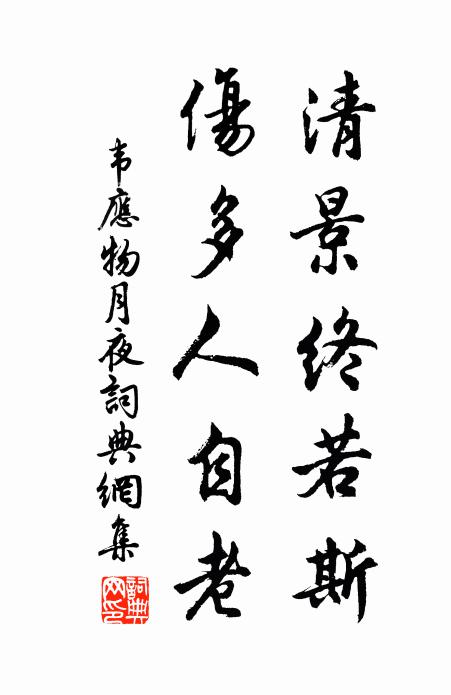 清景終若斯
傷多人自老
韦應物月夜詞典網集
詞典网印